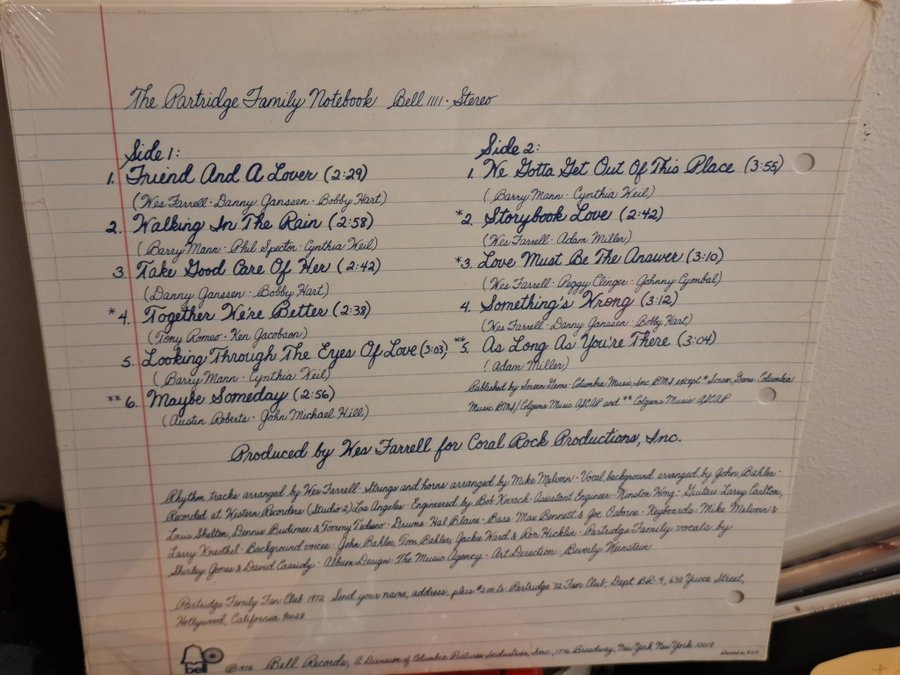 The Partridge Family Notebook Bell 1111 · Stereo
Side 1:
1. Friend And A Lover (2:29)
(Wes Farrell · Danny Janssen · Bobby Hart)
2. Walking In The Rain (2:58)
(Barry Mann · Phil Spector · Cynthia Weil)
3. Take Good Care Of Her (2:42)
(Danny Janssen · Bobby Hart)
*4. Together We're Better (2:38)
(Tony Romeo · Ken Jacobson)
5. Looking Through The Eyes Of Love (3:03)
(Barry Mann · Cynthia Weil)
**6. Maybe Someday (2:56)
(Austin Roberts · John Michael Hill)
Side 2:
1. We Gotta Get Out Of This Place (3:55)
(Barry Mann · Cynthia Weil)
*2. Storybook Love (2:42)
(Wes Farrell · Adam Miller)
*3. Love Must Be The Answer (3:10)
(Wes Farrell · Peggy Clinger · Johnny Cymbal)
4. Something's Wrong (3:12)
(Wes Farrell · Danny Janssen · Bobby Hart)
**5. As Long As You're There (3:04)
(Adam Miller)
Published by Screen Gems-Columbia Music, Inc. BMI except * Screen Gems-Columbia
Music BMI/Colgems Music ASCAP and ** Colgems Music · ASCAP
Produced by Wes Farrell for Coral Rock Productions, Inc.
Rhythm tracks arranged by Wes Farrell · Strings and horns arranged by Mike Melvoin · Vocal background arranged by John Bahler ·
Recorded at Western Recorders (Studio 2) Los Angeles · Engineered by Bob Kovach Assistant Engineer · Winston Wong · Guitars Larry Carlton,
Louie Shelton, Dennis Budimer & Tommy Tedesco · Drums Hal Blaine · Bass Max Bennett & Joe Osborne · Keyboards: Mike Melvoin &
Larry Knechtel · Background voices: John Bahler, Tom Bahler, Jackie Ward & Ron Hicklin · Partridge Family vocals by
Shirley Jones & David Cassidy · Album Design: The Music Agency · Art Direction: Beverly Weinstein
Partridge Family Fan Club 1972 · Send your name, address, plus $2.00 to Partridge '72 Fan Club, Dept. BR 4, 6311 Yucca Street,
Hollywood, California 90028
bell
©1972 Bell Records, A Division of Columbia Pictures Industries, Inc., 1776 Broadway, New York, New York 10019
Printed in U.S.A.